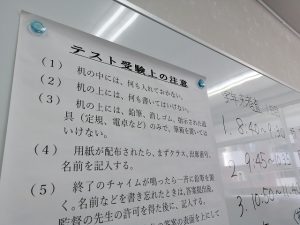 テスト受験上の注意
(1) 机の中には、何も入れておかない。
(2) 机の上には、何も書いてはいけない。
(3) 机の上には、鉛筆、消しゴム、指示された道
具（定規、電卓など）のみで、筆箱を置いては
いけない。
(4) 用紙が配布されたら、まずクラス、出席番号、
名前を記入する。
(5) 終了のチャイムが鳴ったら一斉に鉛筆を置
く。名前などを書き忘れたときは、答案提出後、
監督の先生の許可を得た後に、記入する。
の答案の表面を上にして
1. 8:45~9:
2. 9:45~10:35
3. 10:50~11: